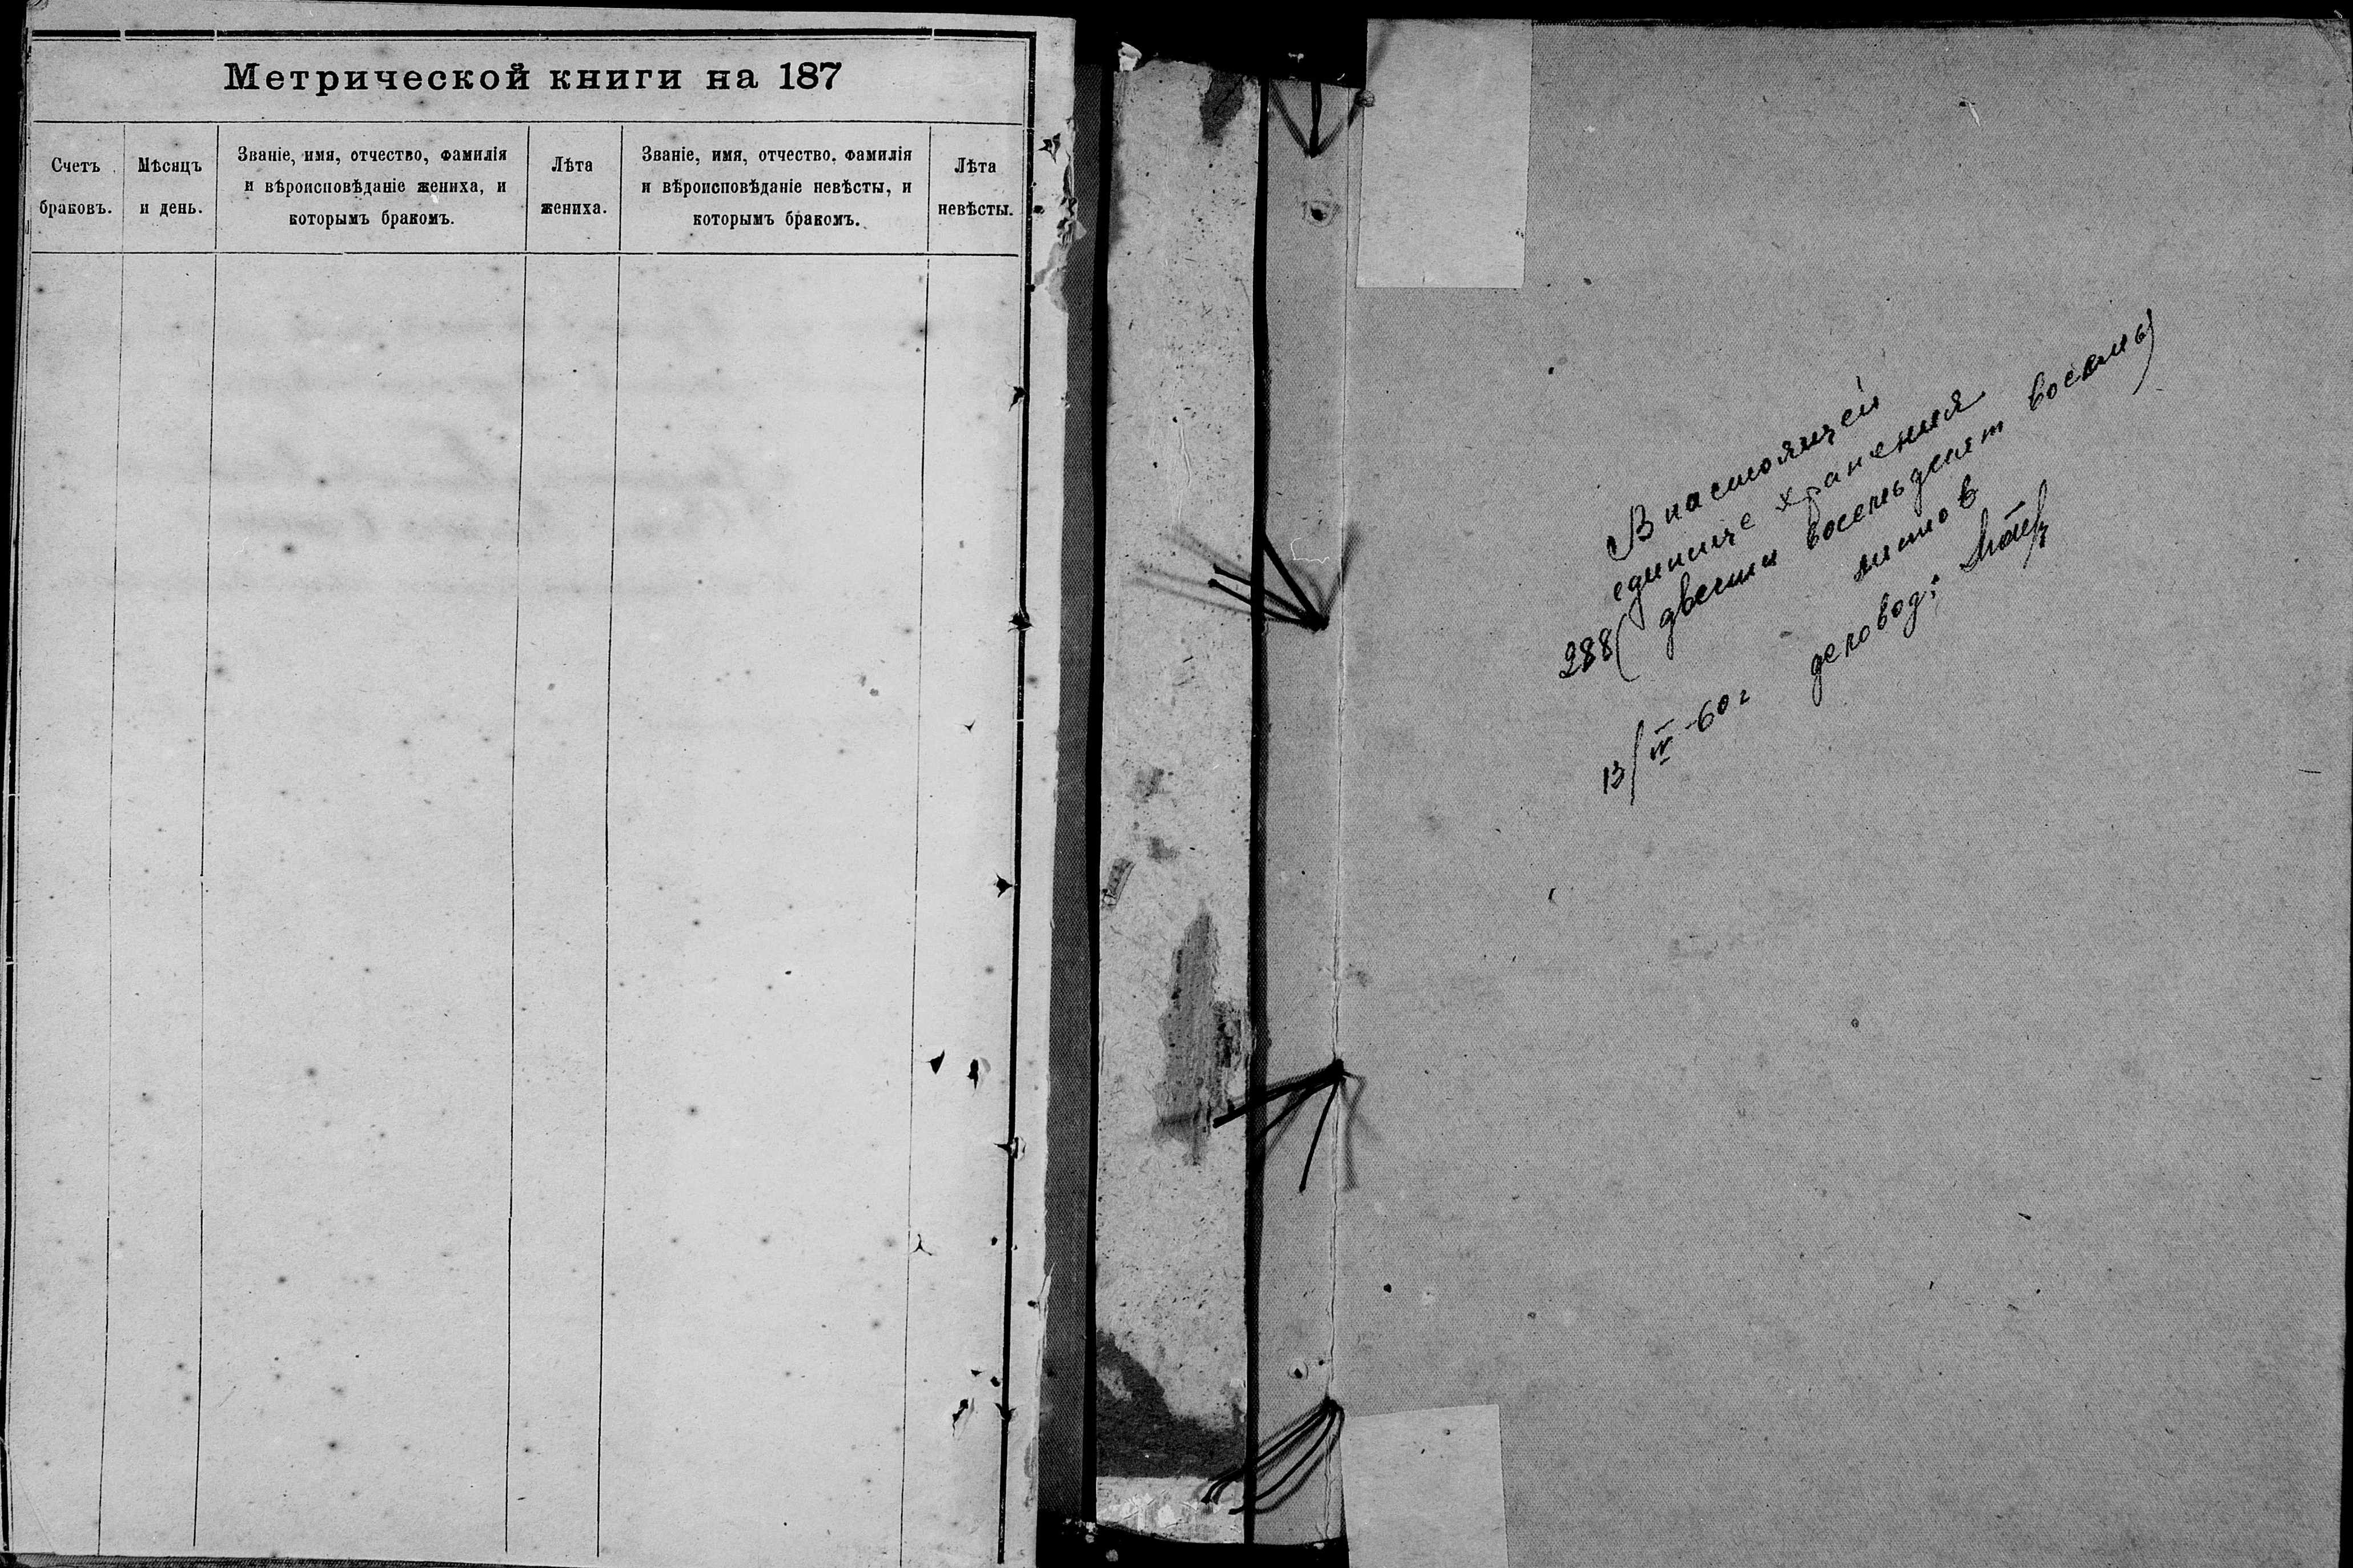 Метрической книги на 187
Счетъ браковъ.
Мѣсяцъ и день.
Званіе, имя, отчество, фамилія
и вѣроисповѣданіе жениха, и
которымъ бракомъ.
Лѣта жениха.
Званіе, имя, отчество, фамилія
и вѣроисповѣданіе невѣсты, и
которымъ бракомъ.
Лѣта невѣсты.
В настоящей
единице хранения
288 (двести восемьдесят восемь)
листов
13/IV-60г деловод: